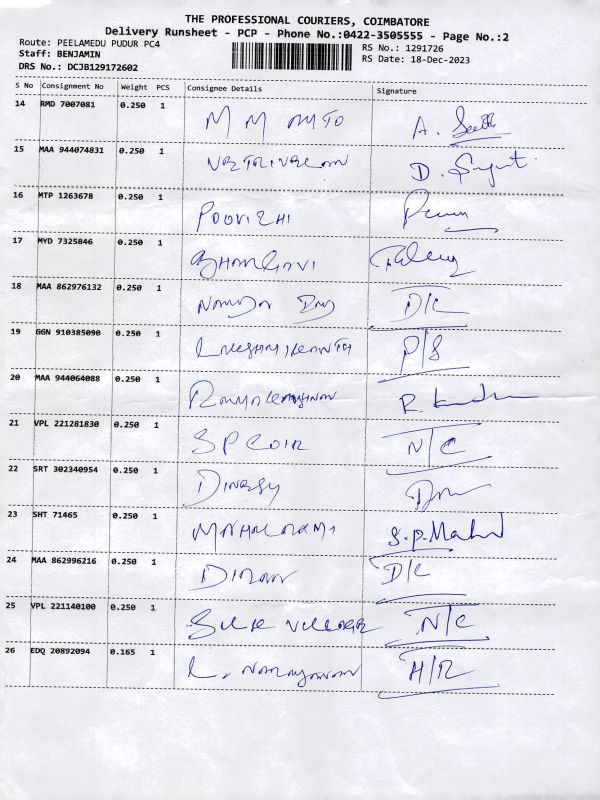 THE PROFESSIONAL COURIERS, COIMBATORE
Delivery Runsheet - PCP - Phone No.:0422-3505555 - Page No.:2
Route: PEELAMEDU PUDUR PC4 RS No.: 1291726
Staff: BENJAMIN RS Date: 18-Dec-2023
DRS No.: DCJB129172602
S No Consignment No Weight PCS Consignee Details Signature
14 RMD 7007081 0.250 1 M M AUTO A.
15 MAA 944074831 0.250 1 D.
16 MTP 1263678 0.250 1 POOVIZHI
17 MYD 7325846 0.250 1 BHARGAVI
18 MAA 862976132 0.250 1 D/C
19 GGN 910385090 0.250 1 LAKSHMIKANTH P/S
20 MAA 944064088 0.250 1 R.
21 VPL 221281830 0.250 1 S P COIR N/C
22 SRT 302340954 0.250 1 DINESH
23 SHT 71465 0.250 1 S.P.
24 MAA 862996216 0.250 1 D/C
25 VPL 221140100 0.250 1 SILK VILLAGE N/C
26 EDQ 20892094 0.165 1 L. NARAYANAN H/R